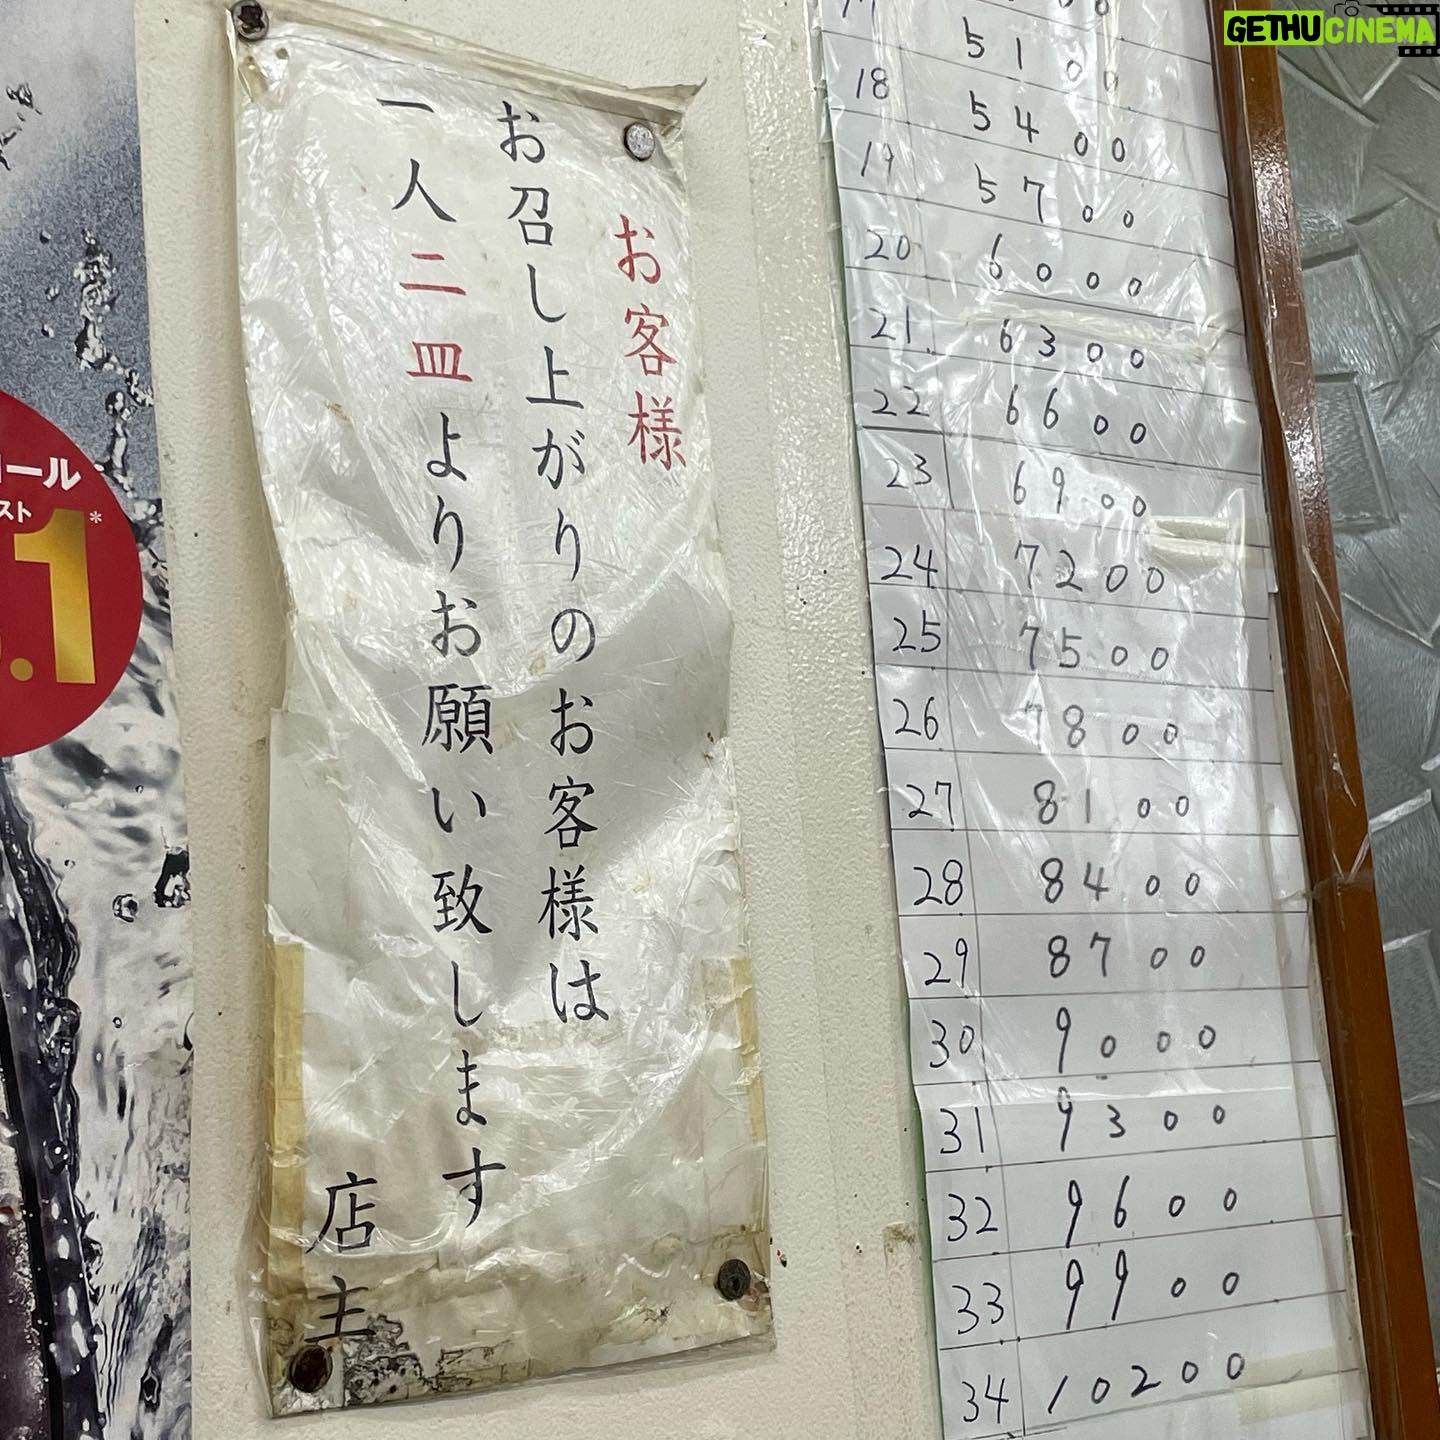 お客様
お召し上がりのお客様は
一人二皿よりお願い致します
店主
17 5100
18 5400
19 5700
20 6000
21 6300
22 6600
23 6900
24 7200
25 7500
26 7800
27 8100
28 8400
29 8700
30 9000
31 9300
32 9600
33 9900
34 10200
ール
スト
.1*
GETHUCINEMA